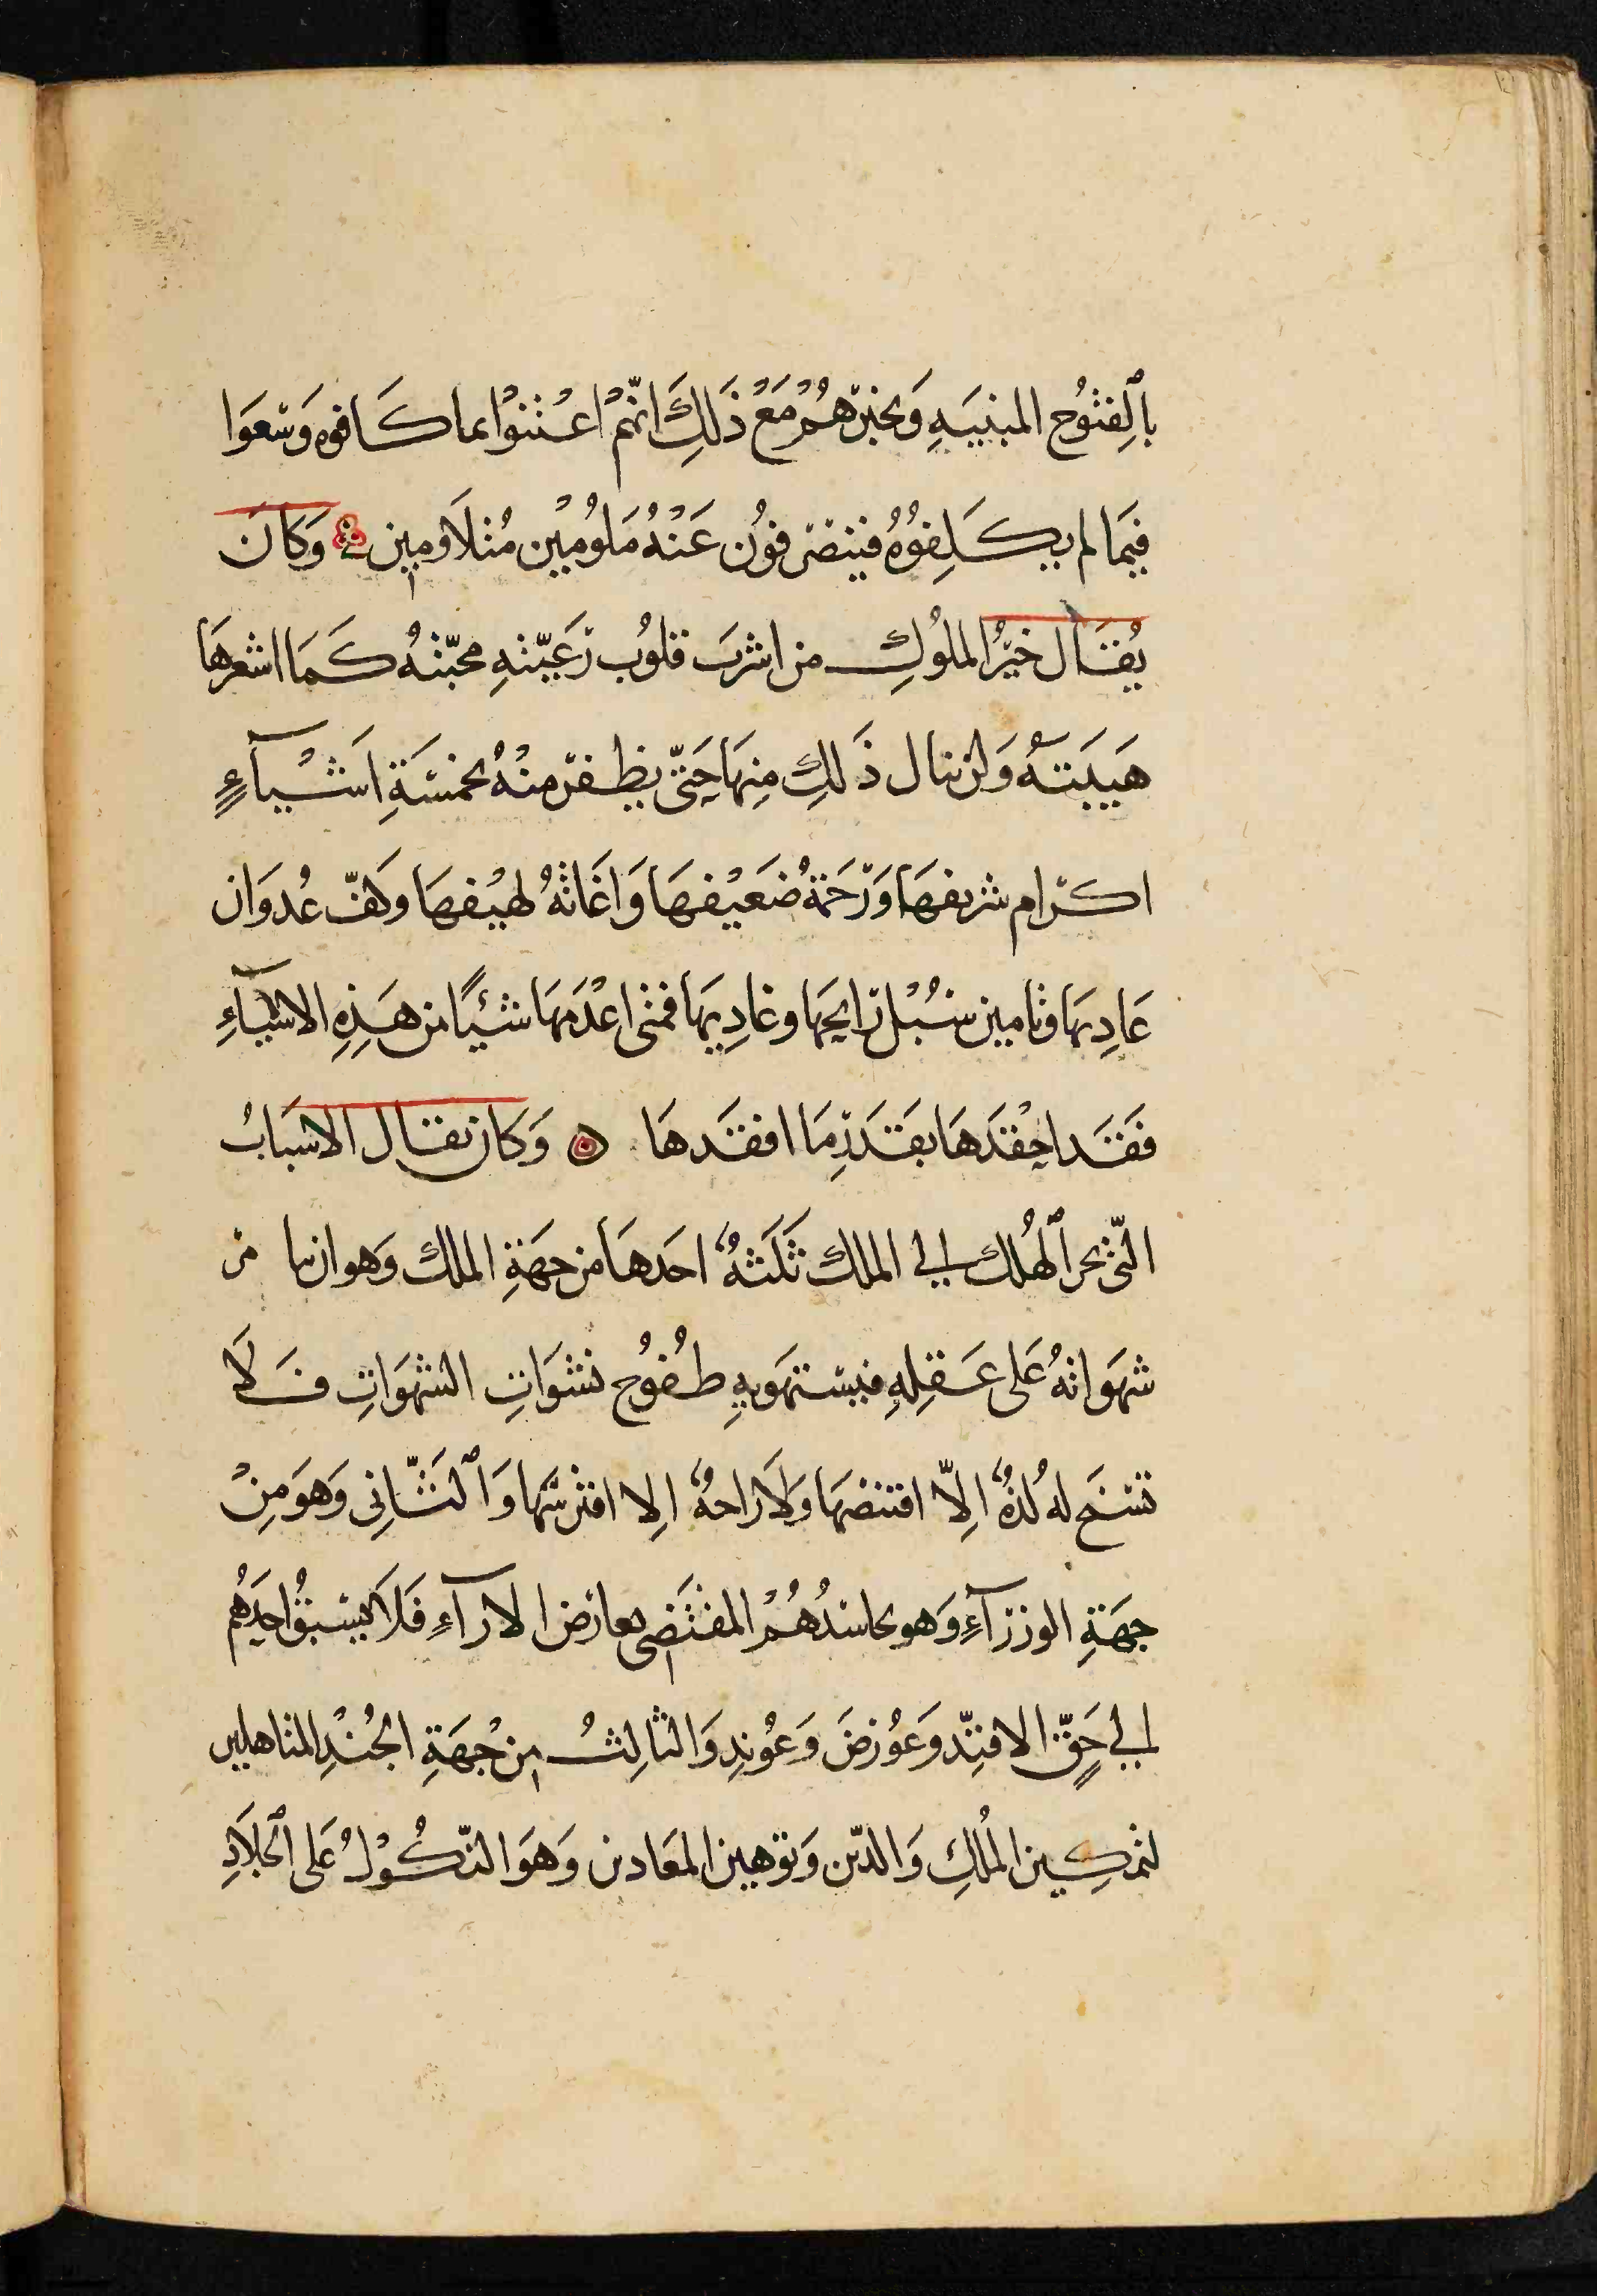 بالفتوح المبنيه وبخبرهم مع ذلك انهم اعتنوا بما كافوه وسعوا
فيما لم يكلفوه فينصرفون عنه ملومين متلاومين وكان
يُقال خير الملوك من اشرب قلوب رعيّته محبّته كما اشعرها
هيبته ولن ينال ذلك منها حتى يظفر منه بخمسة اشيآءٍ
اكرام شريفها ورحمة ضعيفها واغاثة لهيفها وكفّ عدوان
عاديها وتامين سبل رايحها وغاديها فمتى اعدمها شيئًا من هذه الاشيآء
فقد احقدها بقدر ما افقدها وكان يقال الاسباب
التي تجر الهُلك الي الملك ثلثةٌ احدها من جهة الملك وهو ان تتامر
شهواته على عقله فيستهويه طفوح نشوات الشهوات فلا
تسنح له لذةٌ الّا اقتنصها ولا راحةٌ الا افترسها والثّاني وهو من
جهة الوزرآء وهو تحاسدهم المقتضى تعارض الارآء فلا يسبق احدهم
الي حقّ الا فنّد وعورض وعوند والثالث من جهة الجند المتاهلين
لتمكين المُلك والدّين وتوهين المعادين وهو النّكول على الجلاد